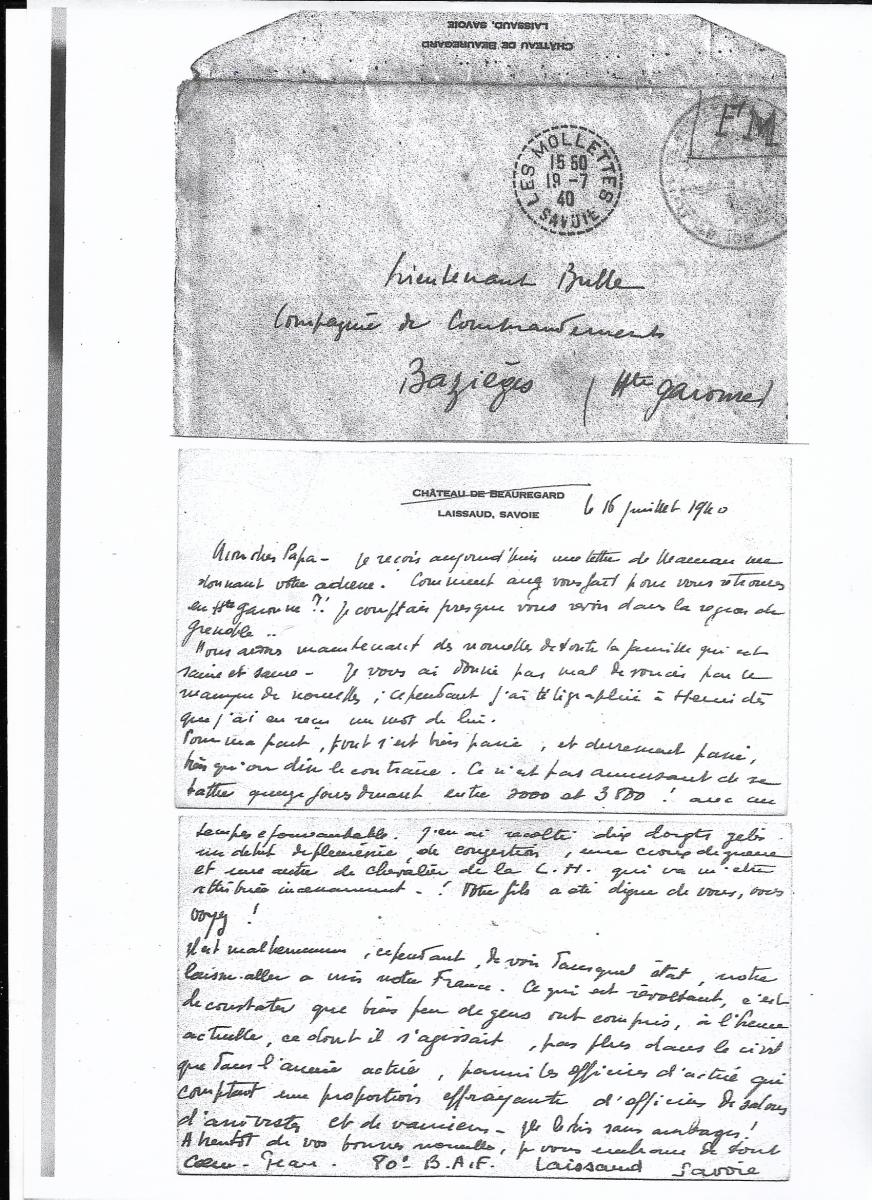 CHÂTEAU DE BEAUREGARD
LAISSAUD, SAVOIE
FM
LES MOLLETTES
15 50
19 -7
40
SAVOIE
Lieutenant Bulle
Compagnie de Commandements
Bazièges (Hte Garonne)
CHÂTEAU DE BEAUREGARD
LAISSAUD, SAVOIE
le 16 juillet 1940
Mon cher Papa - Je reçois aujourd'hui une lettre de Maman me
donnant votre adresse. Comment avez vous fait pour vous retrouver
en Hte Garonne ?! Je comptais presque vous revoir dans la région de
Grenoble ..
Nous avons maintenant des nouvelles de toute la famille qui est
saine et sauve - Je vous ai donné pas mal de soucis par le
manque de nouvelles ; cependant j'ai télégraphié à Henri dès
que j'ai en reçu un mot de lui.
Pour ma part, tout s'est bien passé, et durement passé,
bien qu'on dise le contraire. Ce n'est pas amusant de se
battre quinze jours durant entre 3000 et 3800 ! avec un
temps épouvantable. J'en ai récolté dix doigts gelés
un début de pleurésie, de congestion, une croix de guerre
et une autre de chevalier de la L.H. qui va m'être
attribuée incessamment - ! Votre fils a été digne de vous, vous
voyez !
Il est malheureux, cependant, de voir dans quel état, notre
laisser-aller a mis notre France. Ce qui est révoltant, c'est
de constater que bien peu de gens ont compris, à l'heure
actuelle, ce dont il s'agissait, pas plus dans le civil
que dans l'armée active, parmi les officiers d'active qui
comptent une proportion effrayante d'officiers de salons
d'arrivistes et de vauriens - Je le dis sans ambages !
A bientôt de vos bonnes nouvelles, je vous embrasse de tout
Cœur - Jean. 80e B.A.F. Laissaud Savoie